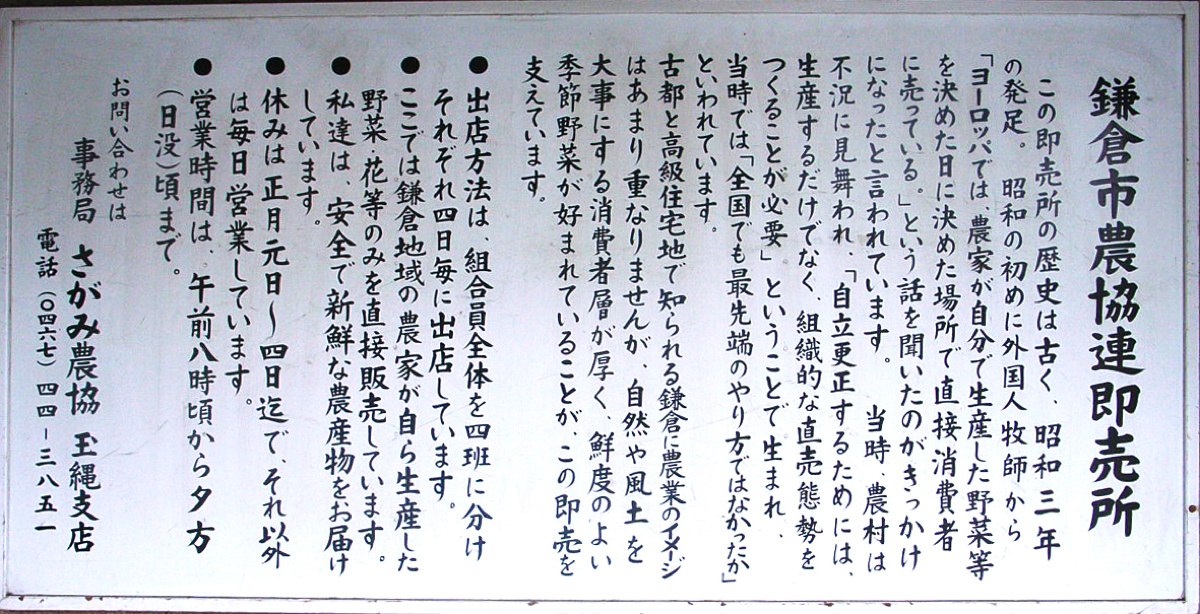 鎌倉市農協連即売所
この即売所の歴史は古く、昭和三年
の発足。　昭和の初めに外国人牧師から
「ヨーロッパでは、農家が自分で生産した野菜等
を決めた日に決めた場所で直接消費者
に売っている。」という話を聞いたのがきっかけ
になったと言われています。　当時、農村は
不況に見舞われ、「自立更正するためには、
生産するだけでなく、組織的な直売態勢を
つくることが必要」ということで生まれ、
当時では「全国でも最先端のやり方ではなかったか」
といわれています。
古都と高級住宅地で知られる鎌倉に農業のイメージ
はあまり重なりませんが、自然や風土を
大事にする消費者層が厚く、鮮度のよい
季節野菜が好まれていることが、この即売を
支えています。
●出店方法は、組合員全体を四班に分け
それぞれ四日毎に出店しています。
●ここでは鎌倉地域の農家が自ら生産した
野菜、花等のみを直接販売しています。
●私達は、安全で新鮮な農産物をお届け
しています。
●休みは正月元日〜四日迄で、それ以外
は毎日営業しています。
●営業時間は、午前八時頃から夕方
（日没）頃まで。
お問い合わせは
事務局　さがみ農協　玉縄支店
電話（〇四六七）四四－三八五一